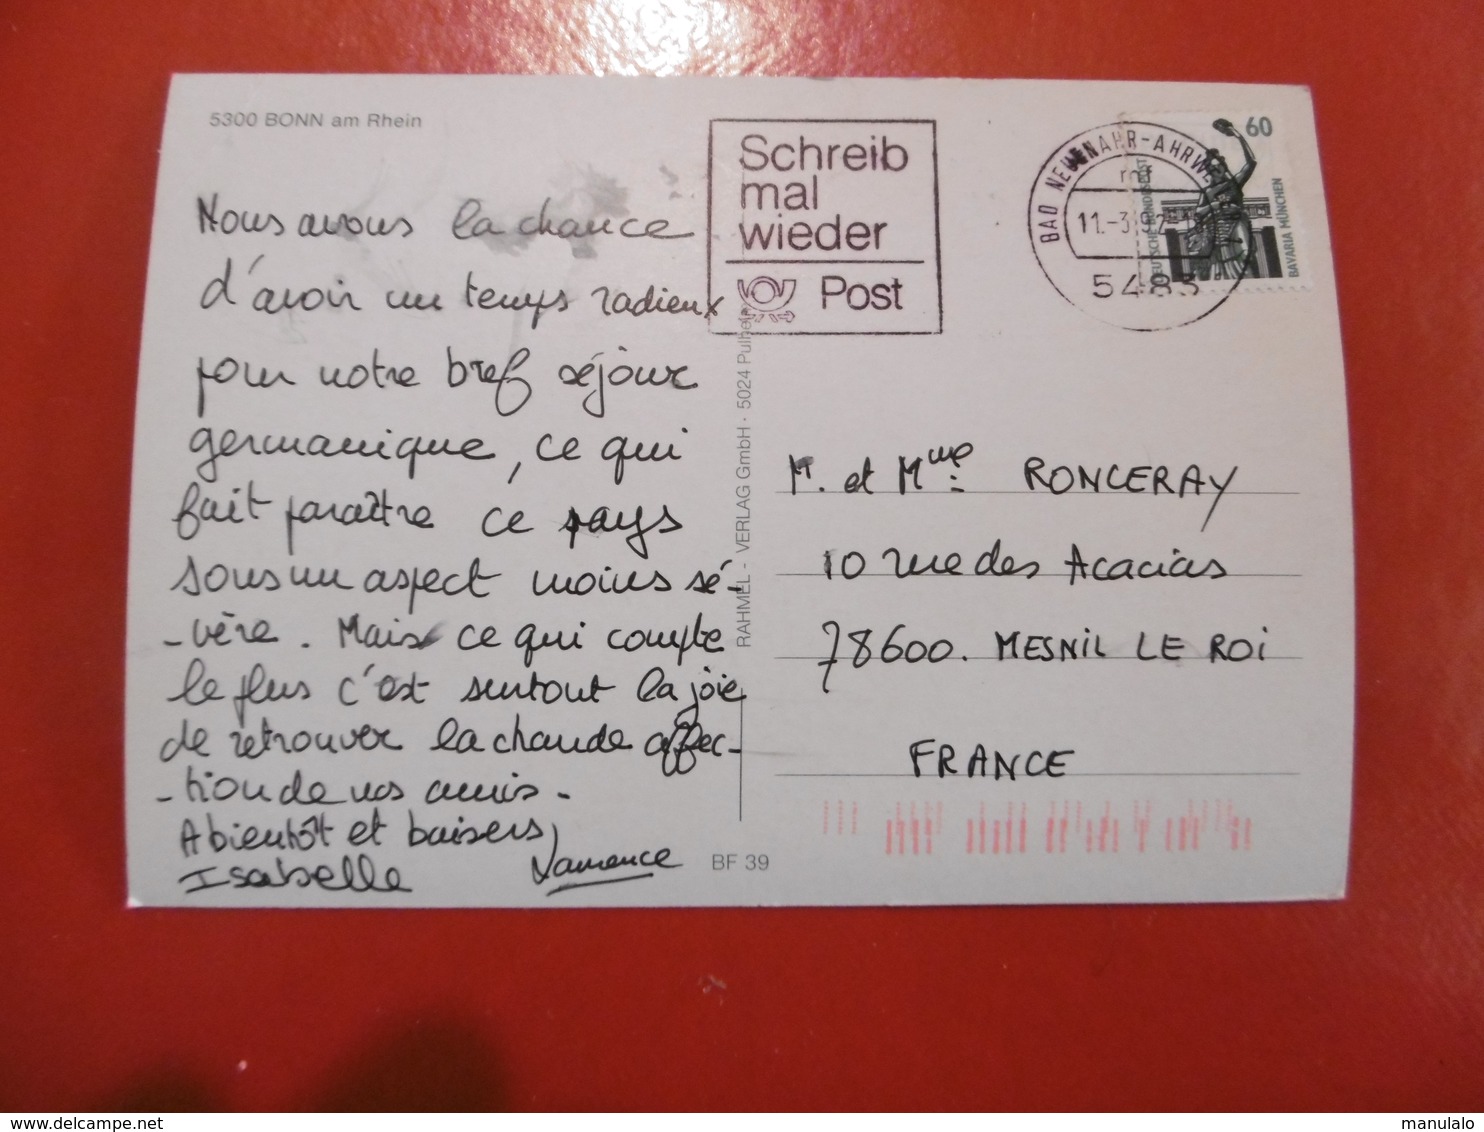 5300 BONN am Rhein
Nous avons la chance
d'avoir un temps radieux
pour notre bref séjour
germanique, ce qui
fait paraître ce pays
sous un aspect moins sé-
-vère. Mais ce qui compte
le plus c'est surtout la joie
de retrouver la chaude affec-
-tion de nos amis.
A bientôt et baisers,
Isabelle Laurence
BF 39
RAHMEL - VERLAG GmbH · 5024 Pulheim
Schreib
mal
wieder
Post
BAD NEUENAHR-AHRWEILER
11.-3.92
5483
60
DEUTSCHE BUNDESPOST
BAVARIA MÜNCHEN
M. et Mme RONCERAY
10 rue des Acacias
78600. MESNIL LE ROI
FRANCE
delcampe.net
manulalo